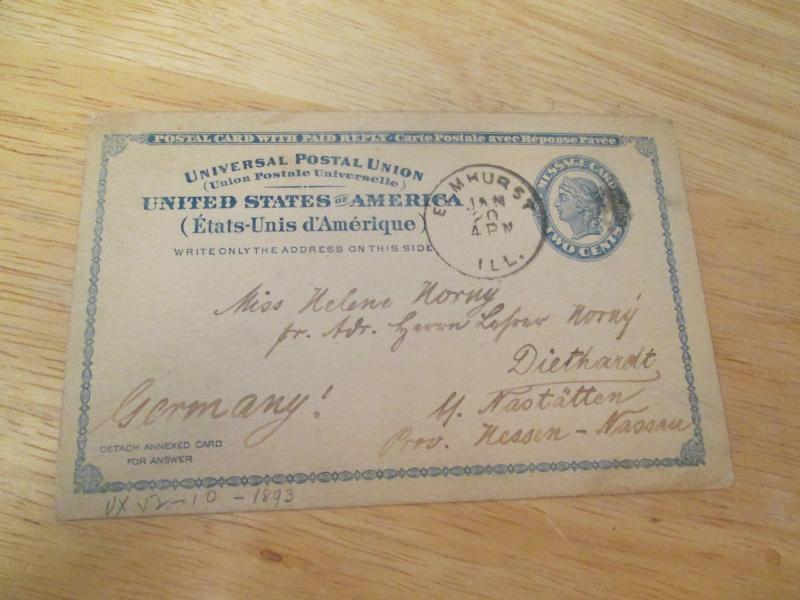 POSTAL CARD WITH PAID REPLY - Carte Postale avec Réponse Payée
UNIVERSAL POSTAL UNION
(Union Postale Universelle)
UNITED STATES OF AMERICA
(États-Unis d'Amérique)
WRITE ONLY THE ADDRESS ON THIS SIDE
ELMHURST
JAN
10
4 PM
ILL.
MESSAGE CARD
TWO CENTS
Miss Helene Horny
pr. Adr. Herrn Lehrer Horny
Diethardt
b/. Nastätten
Prov. Hessen-Nassau
Germany!
DETACH ANNEXED CARD
FOR ANSWER
10 - 1893